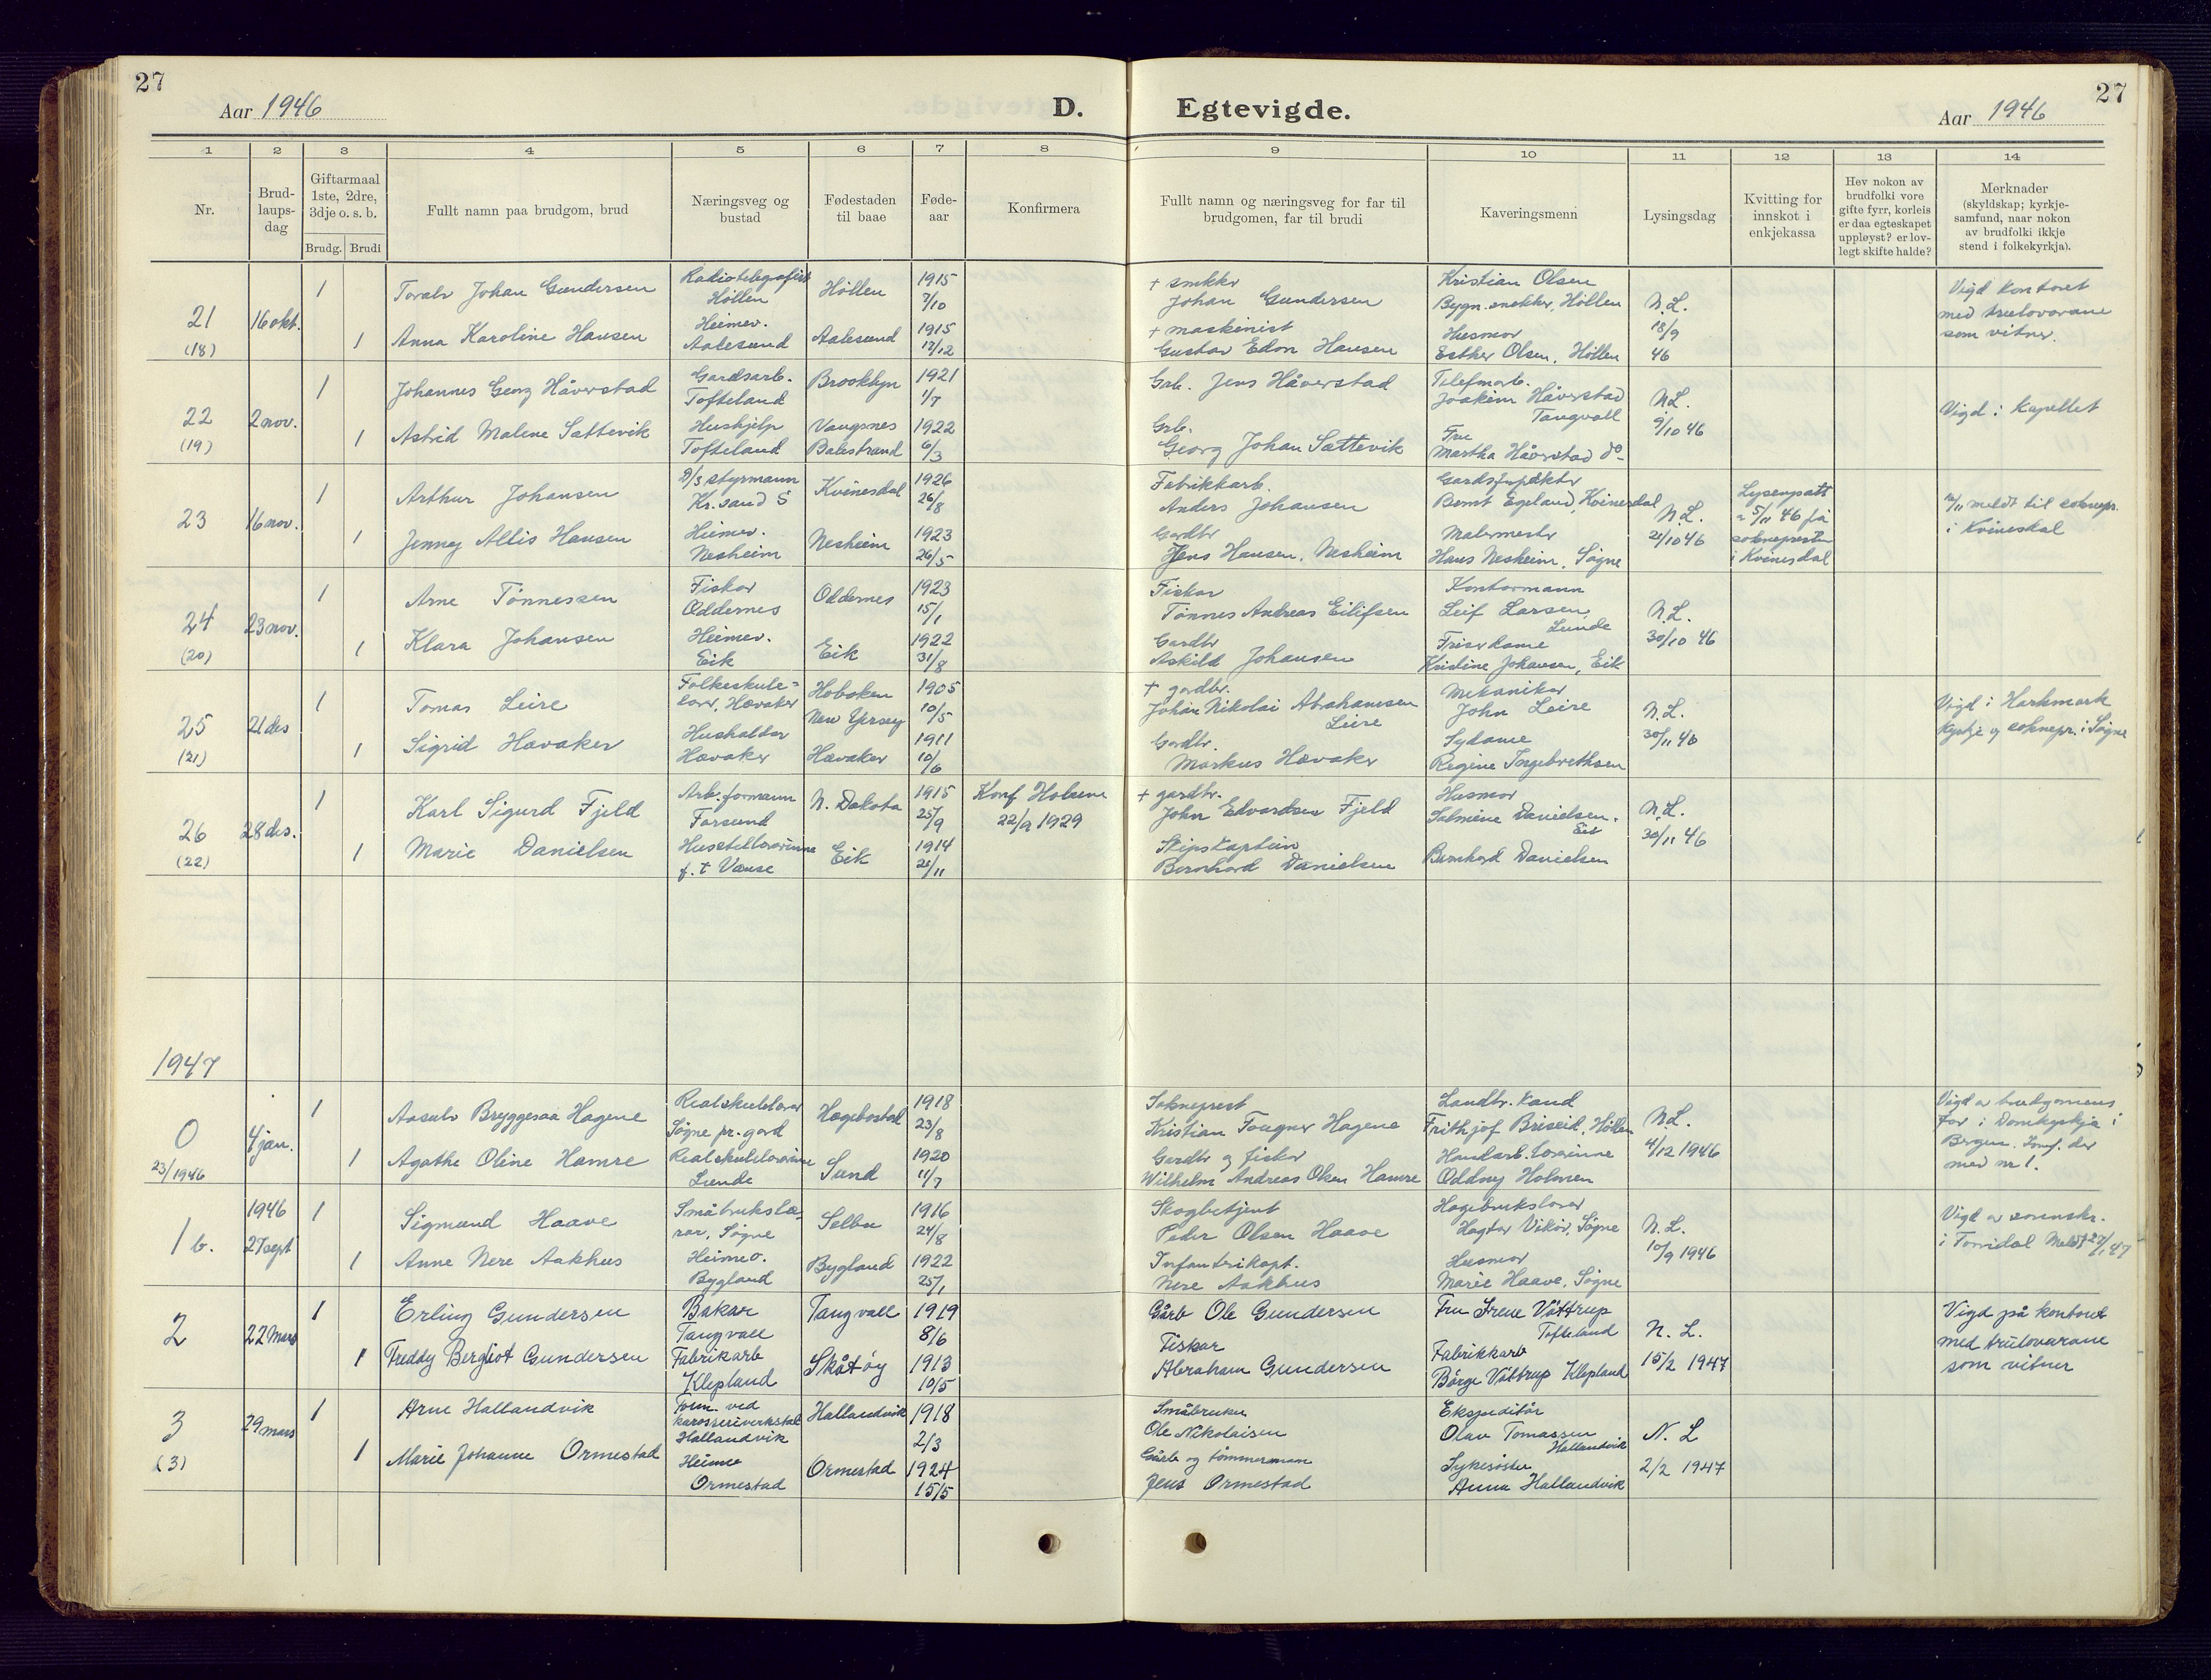 27
Aar 1946
D.
Egtevigde.
Aar 1946
27
1 2 3 4 5 6 7 8 9 10 11 12 13 14
Nr.
Brud-
laups-
dag
Giftarmaal
1ste, 2dre,
3dje o. s. b.
Brudg. Brudi
Fullt namn paa brudgom, brud
Næringsveg og
bustad
Fødestaden
til baae
Føde-
aar
Konfirmera
Fullt namn og næringsveg for far til
brudgomen, far til brudi
Kaveringsmenn
Lysingsdag
Kvitting for
innskot i
enkjekassa
Hev nokon av
brudfolki vore
gifte fyrr, korleis
er daa egteskapet
uppløyst? er lov-
legt skifte halde?
Merknader
(skyldskap; kyrkje-
samfund, naar nokon
av brudfolki ikkje
stend i folkekyrkja).
21
(18)
16 okt.
1
Toralv Johan Gundersen
Radiotelegrafist
Höllen
Höllen
1915
7/10
1
Anna Karoline Hansen
Heimev.
Aalesund
Aalesund
1915
12/12
+ snikkr
Johan Gundersen
+ maskinist
Gustav Edon Hansen
Kristian Olsen
Bygn.snekker, Höllen
Husmor
Esther Olsen, Höllen
N.L.
18/9
46
Vigd kontoret
med trulovarane
som vitner.
22
(19)
2 nov.
1
Johannes Georg Håverstad
Gardsarb.
Tofteland
Brooklyn
1921
1/7
1
Astrid Malene Sættevik
Hushjelp
Tofteland
Vangsnes
Balestrand
1922
6/3
Grb. Jens Håverstad
Grb.
Georg Johan Sættevik
Telefonarb.
Joakim Håverstad
Tangvall
Fru
Martha Håverstad do
N.L.
9/10 46
Vigd i kapellet
23
16 nov.
1
Arthur Johansen
D/S styrmann
Kr.sand S
Kvinesdal
1926
26/8
1
Jenney Allis Hansen
Heimev.
Nesheim
Nesheim
1923
26/5
Fabrikkarb.
Anders Johansen
Gardbr
Jens Hansen, Nesheim
Bernt Egeland, Kvinesdal
Malermestr
Hans Nesheim, Søgne
N.L.
21/10 46
5/11 46 på
soknepresten
i Kvinesdal
12/11 meldt til soknepr.
i Kvinesdal
24
(20)
23 nov.
1
Arne Tönnessen
Fiskar
Oddernes
Oddernes
1923
15/1
1
Klara Johansen
Heimev.
Eik
Eik
1922
31/8
Fiskar
Tönnes Andreas Eilifsen
Gardbr
Askild Johansen
Kontormann
Leif Larsen
Lunde
Frisördame
Kristine Johansen, Eik
N.L.
30/10 46
25
(21)
21 des
1
Tomas Leire
Folkeskule-
lærer, Hævaker
Hoboken
New Yersey
1905
10/5
1
Sigrid Hævaker
Hushaldar
Hævaker
Hævaker
1911
10/6
+ gardbr.
Johan Nikolai Abrahamsen
Leire
Gardbr.
Markus Hævaker
Mekanikar
John Leire
Sydame
Regine Ingebrethsen
N.L.
30/11 46
Vigd i Harkmark
kyrkje av soknepr. i Søgne
26
(22)
28 des.
1
Karl Sigurd Fjeld
Arb.formann
Farsund
N. Dakota
1915
25/9
Konf Holum
22/9 1929
1
Marie Danielsen
Husstellærarinne
f.t Vanse
Eik
1914
21/11
+ gardbr.
John Edvardsen Fjeld
Skipskaptein
Bernhard Danielsen
Husmor
Salmine Danielsen.
Eik
Bernhard Danielsen
N.L.
30/11 46
1947
0
23/1946
4 jan.
1
Aasulv Bryggesaa Hagene
Realskulelærar
Søgne pr.gard
Hægebostad
1918
23/8
1
Agathe Oline Hamre
Realskulelærarinne
Lunde
Sund
1920
11/7
Sokneprest
Kristian Fougner Hagene
Gardbr og fiskar
Wilhelm Andreas Olsen Hamre
Landbr. kand
Frithjof Briseid, Höllen
Handarb.lærarinne
Oddny Holmen
N.L.
4/12 1946
Vigd av brudgomens
far i Domkyrkja i
Bergen. Innf. der
med nr 1.
1 b.
1946
27 sept
1
Sigmund Haave
Småbrukslæ-
rar, Søgne
Selbu
1916
24/8
1
Anne Nere Aakhus
Heimev.
Bygland
Bygland
1922
25/1
Skogbetjent
Peder Olsen Haave
Infanterikapt.
Nere Aakhus
Hagebrukslærar
Hagtor Vikör, Søgne
Husmor
Marie Haave, Søgne
N.L.
10/9 1946
Vigd av sorenskr.
i Torridal Meldt 27/1 47
2
22 Mars
1
Erling Gundersen
Bakar
Tangvall
Tangvall
1919
8/6
1
Freddy Bergliot Gundersen
Fabrikarb
Klepland
Skåtøy
1913
10/5
Gårb Ole Gundersen
Fiskar
Abraham Gundersen
Fru Irene Våttrup
Tofteland
Fabrikkarb
Börge Våttrup Klepland
N. L.
15/2 1947
Vigd på kontoret
med trulovarane
som vitner
3
(3)
29 mars
1
Arne Hallandvik
Form. ved
karosseriverkstad
Hallandvik
Hallandvik
1918
2/3
1
Marie Johanne Ormestad
Heime
Ormestad
Ormestad
1924
15/5
Småbruker
Ole Nikolaisen
Gårb og tömmermann
Jens Ormestad
Ekspeditör
Olav Tomassen
Hallandvik
Sykesöster
Anna Hallandvik
N. L
2/2 1947